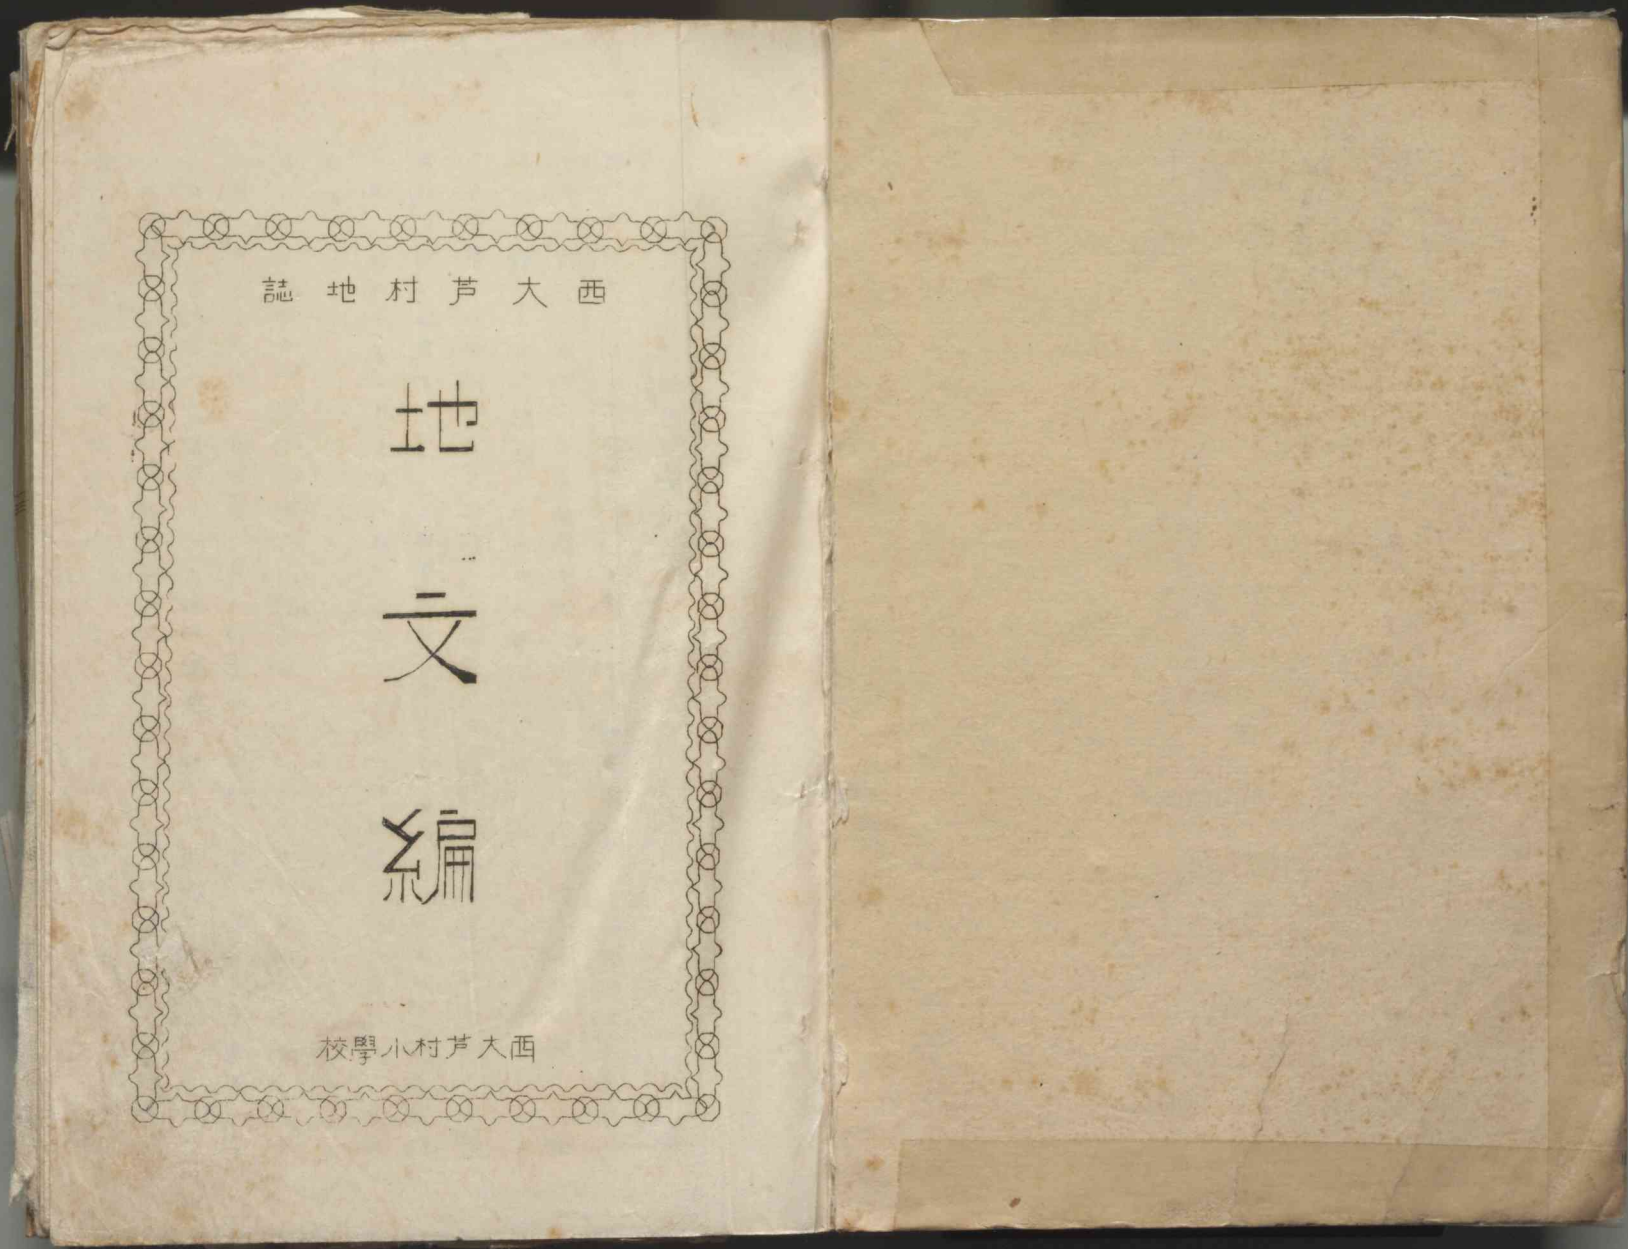 西大芦村地誌
地文編
西大芦村小學校